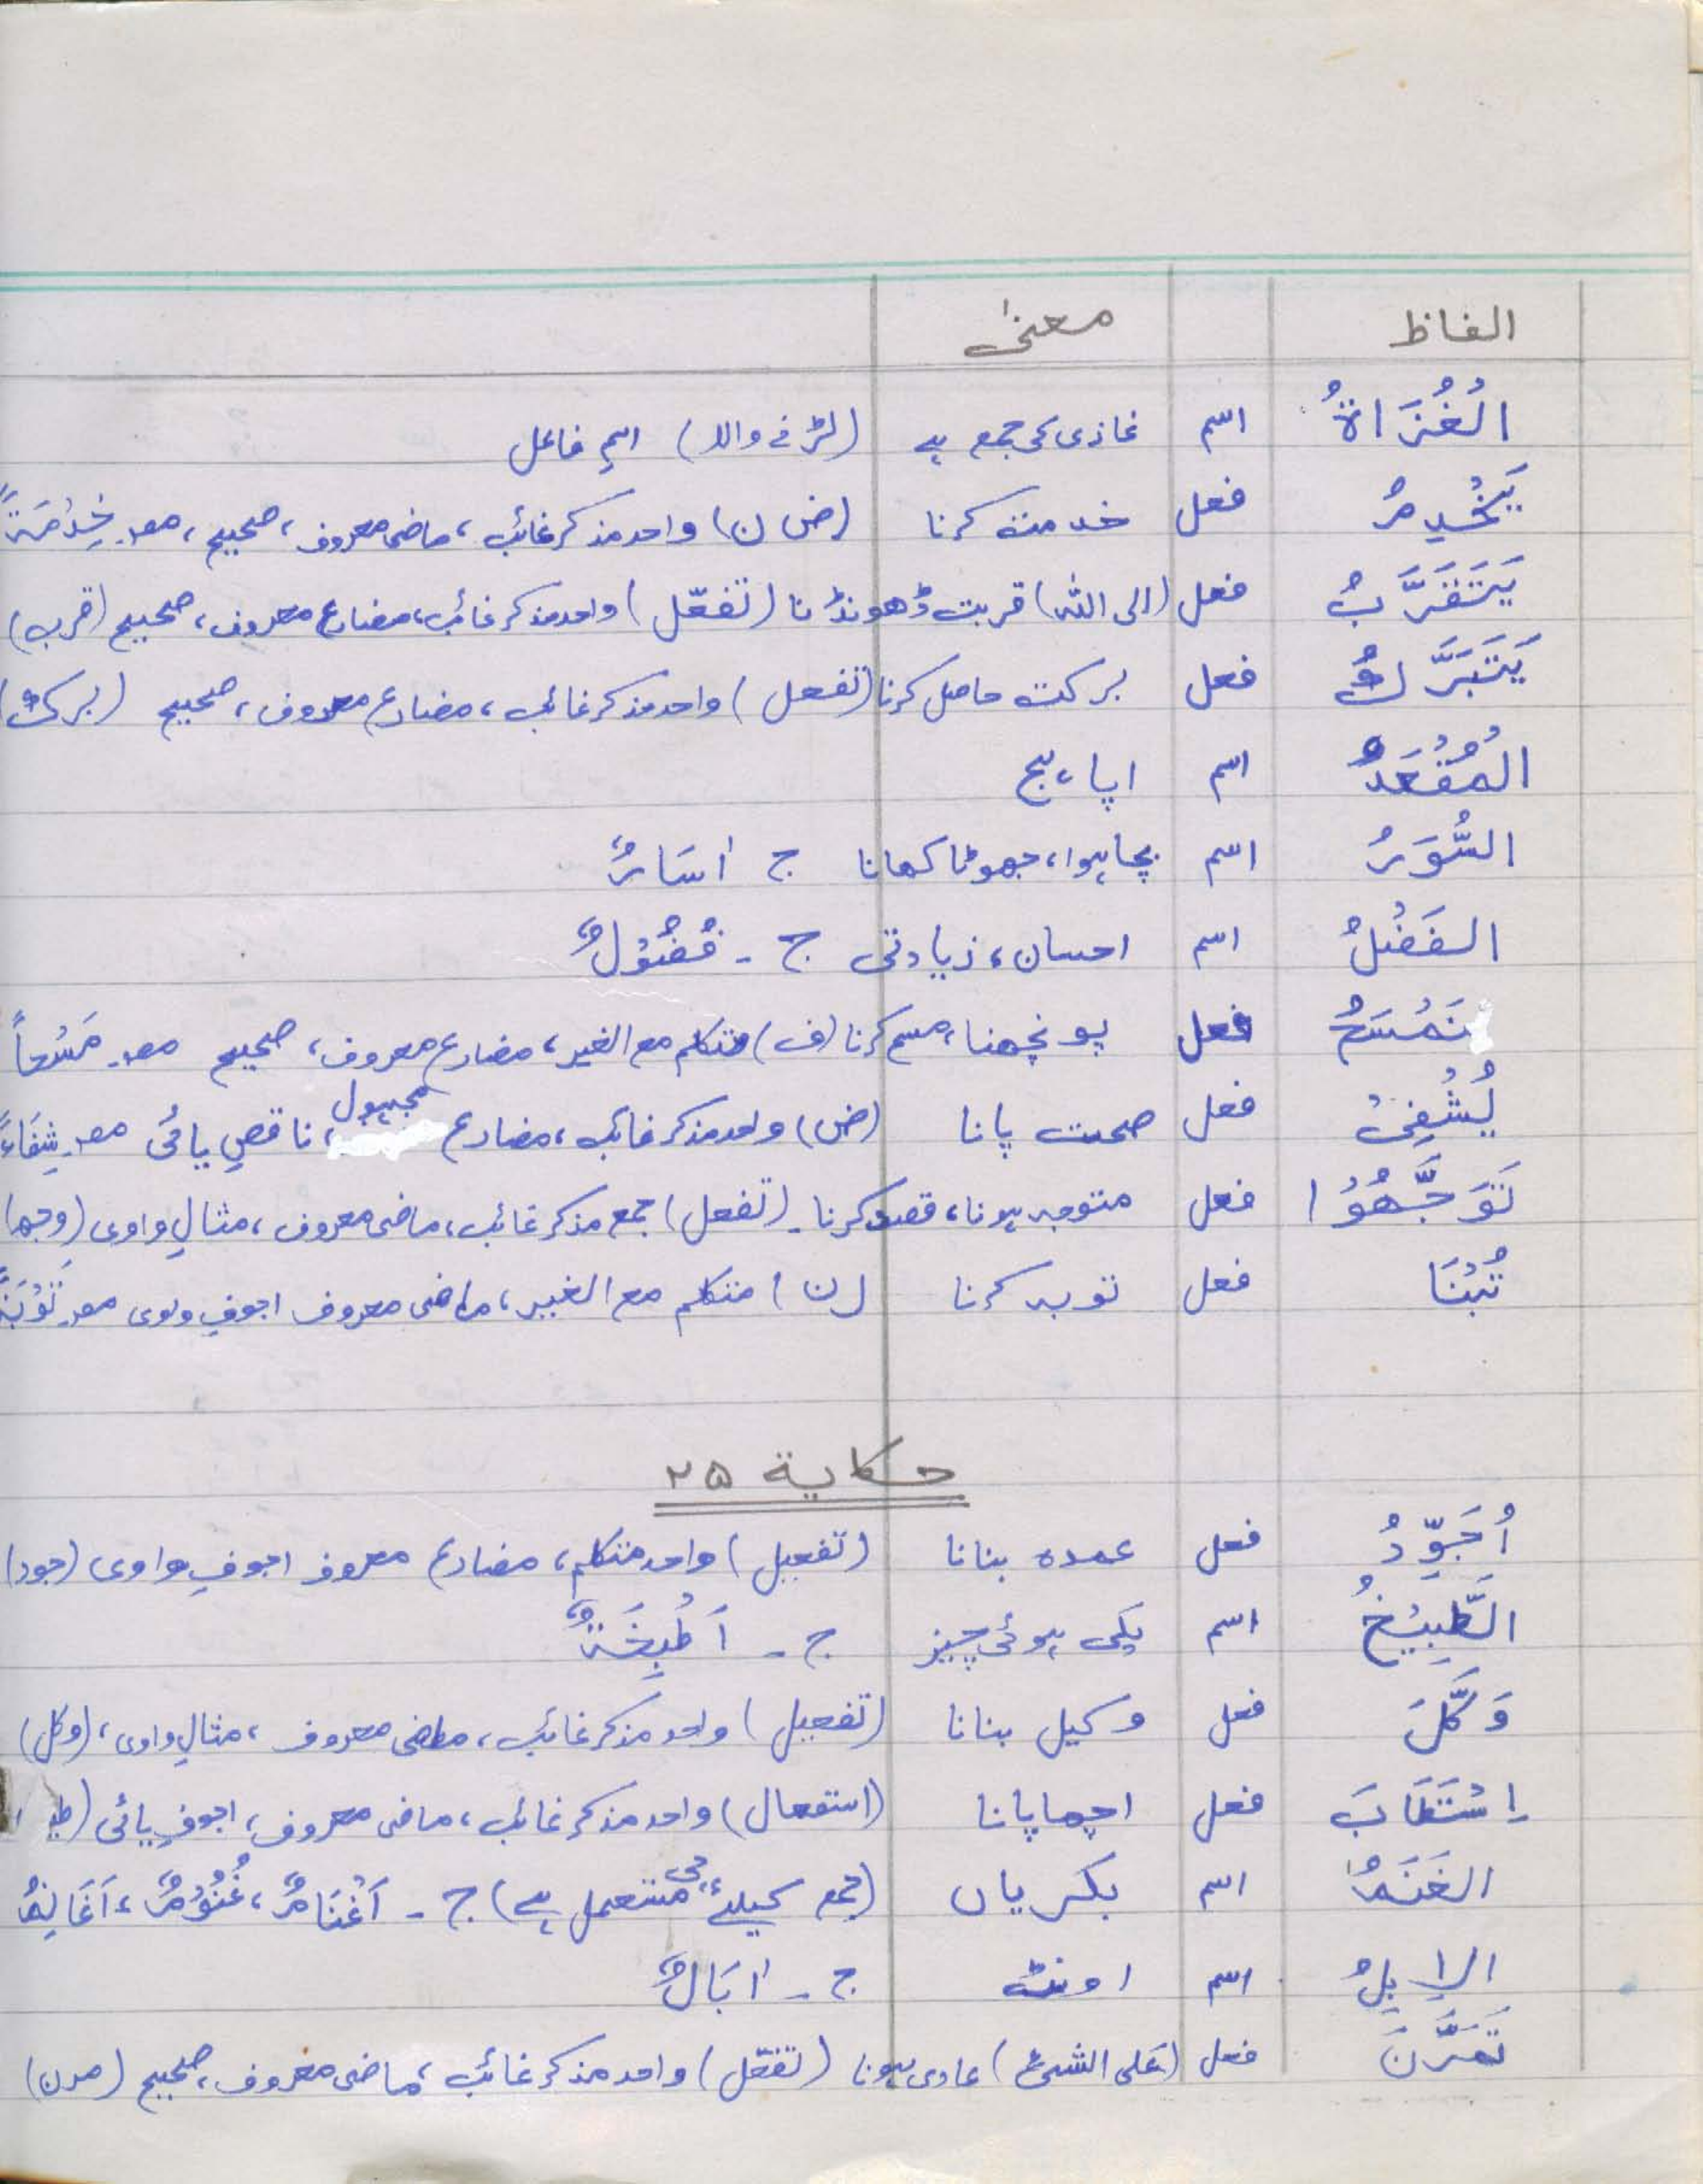 الفاظ معنیٰ
الْغُزَاةُ اسم غازی کی جمع ہے (لڑنے والا) اسمِ فاعل
یَخْدِمُ فعل خدمت کرنا (ض ن) واحد مذکر غائب، ماضی معروف، صحیح، مصـ خِدْمَةً
یَتَقَرَّبُ فعل (الی اللہ) قربت ڈھونڈنا (تفعّل) واحد مذکر غائب، مضارع معروف، صحیح (قرب)
یَتَبَرَّكُ فعل برکت حاصل کرنا (تفعل) واحد مذکر غائب، مضارع معروف، صحیح (برک)
الْمُقْعَدُ اسم اپاہج
السُّوَرُ اسم بچا ہوا، جھوٹا کھانا ج اٰسَارٌ
الفَضْلُ اسم احسان، زیادتی ج - فُضُوْلٌ
نَمْسَحُ فعل پونچھنا، مسح کرنا (ف) متکلم مع الغیر، مضارع معروف، صحیح مصـ مَسْحاً
یُشْفِیْ فعل صحت پانا (ض) واحد مذکر غائب، مضارع مجہول، ناقصِ یائی مصـ شِفَاءً
تَوَجَّهُوْا فعل متوجہ ہونا، قصد کرنا - (تفعل) جمع مذکر غائب، ماضی معروف، مثالِ واوی (وجہ)
تُبْنَا فعل توبہ کرنا (ن) متکلم مع الغیر، ماضی معروف اجوفِ واوی مصـ تَوْبَةً
حکایة ۲۵
اُجَوِّدُ فعل عمدہ بنانا (تفعیل) واحد متکلم، مضارع معروف اجوفِ واوی (جود)
الطَّبِیْخُ اسم پکی ہوئی چیز ج - اَطْبِخَةٌ
وَكَّلَ فعل وکیل بنانا (تفعیل) واحد مذکر غائب، ماضی معروف، مثالِ واوی، (وکل)
اِسْتَطَابَ فعل اچھا پانا (استفعال) واحد مذکر غائب، ماضی معروف، اجوفِ یائی
الغَنَمُ اسم بکریاں (جمع کیلئے بھی مستعمل ہے) ج - اَغْنَامٌ، غُنُوْمٌ، اَغَانِمُ
الاِبِلُ اسم اونٹ ج - اٰبَالٌ
تَمَرَّنَ فعل (علی الشیٔ) عادی ہونا (تفعّل) واحد مذکر غائب، ماضی معروف، صحیح (مرن)